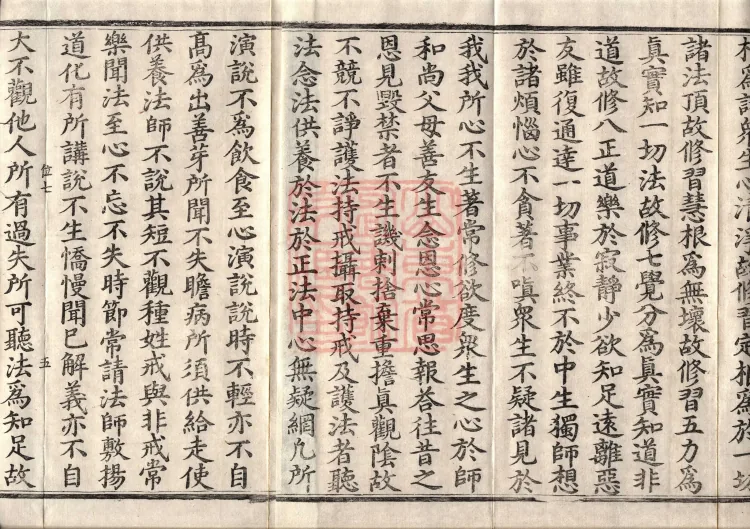 諸法頂故修習慧根為無壞故修習五力為
真實知一切法故修七覺分為真實知道非
道故修八正道樂於寂靜少欲知足遠離惡
友雖復通達一切事業終不於中生獨師想
於諸煩惱心不貪著不嗔眾生不疑諸見於
我我所心不生著常修欲度眾生之心於師
和尚父母善友生念恩心常思報荅往昔之
恩見毀禁者不生譏刺捨棄重擔真觀陰故
不競不諍護法持戒攝取持戒及護法者聽
法念法供養於法於正法中心無疑網凡所
演說不為飲食至心演說說時不輕亦不自
高為出善芽所聞不失瞻病所須供給走使
供養法師不說其短不觀種姓戒與非戒常
樂聞法至心不忘不失時節常請法師敷揚
道化有所講說不生憍慢聞已解義亦不自
位七
五
大不觀他人所有過失所可聽法為知足故